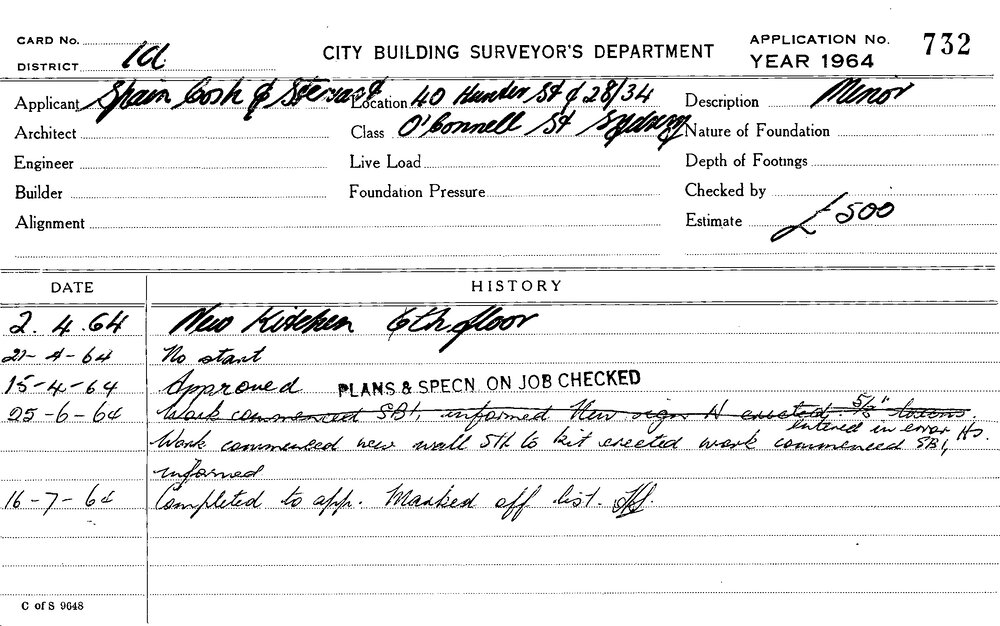 CARD No.
DISTRICT 1d.
CITY BUILDING SURVEYOR'S DEPARTMENT
APPLICATION No. 732
YEAR 1964
Applicant Spain Cosh & Stewart
Location 40 Hunter St & 28/34
Description Minor
Architect
Class O'Connell St Sydney
Nature of Foundation
Engineer
Live Load
Depth of Footings
Builder
Foundation Pressure
Checked by
Alignment
Estimate £500
DATE HISTORY
2.4.64 New Kitchen 6th floor
21-4-64 No start
15-4-64 Approved PLANS & SPECN. ON JOB CHECKED
25-6-64 Work commenced SBI, informed New sign N erected.
entered in error
Work commenced new wall 5th to kit erected work commenced SBI,
informed
16-7-64 Completed to app. Marked off list.
C of S 9648